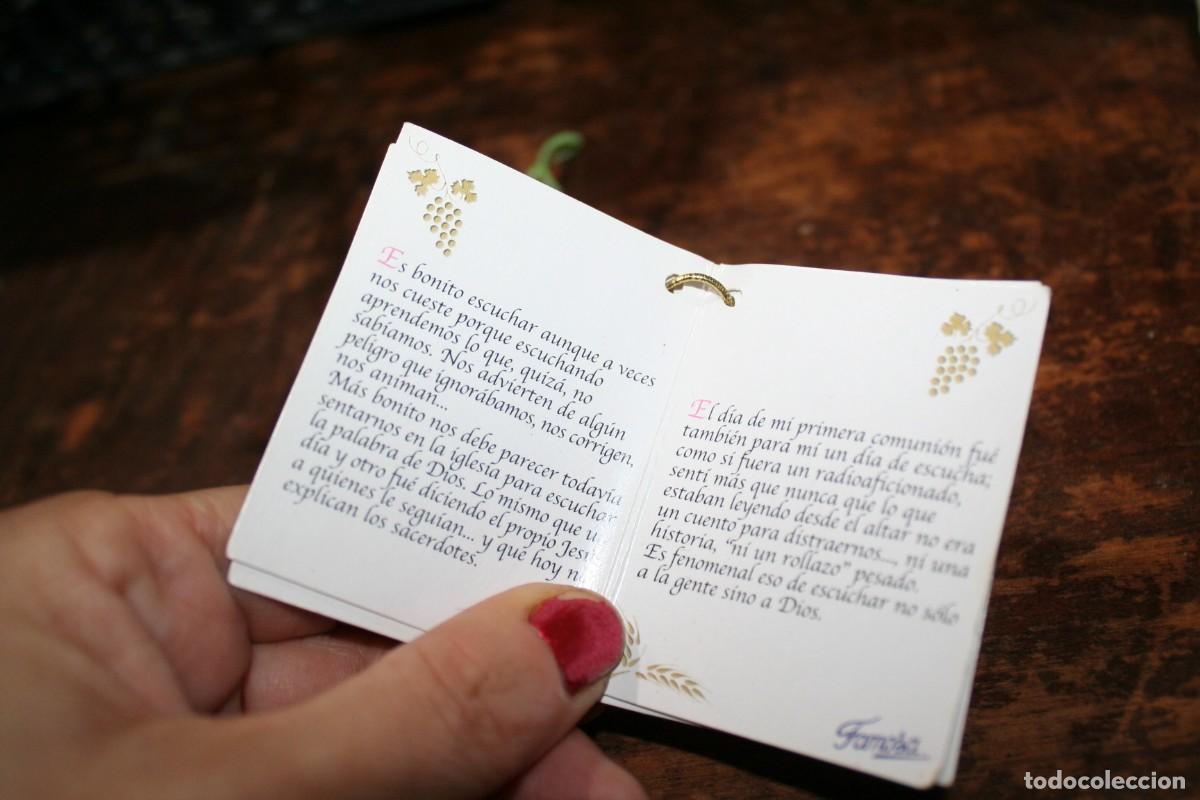 Es bonito escuchar aunque a veces
nos cueste porque escuchando
aprendemos lo que, quizá, no
sabíamos. Nos advierten de algún
peligro que ignorábamos, nos corrigen,
nos animan...
Más bonito nos debe parecer todavía
sentarnos en la iglesia para escuchar
la palabra de Dios. Lo mismo que u
día y otro fué diciendo el propio Jesú
a quienes le seguían... y que hoy n
explican los sacerdotes.
El día de mi primera comunión fué
también para mí un día de escucha;
como si fuera un radioaficionado,
sentí más que nunca que lo que
estaban leyendo desde el altar no era
un cuento para distraernos..., ni una
historia, "ni un rollazo" pesado.
Es fenomenal eso de escuchar no sólo
a la gente sino a Dios.
Famosa
todocoleccion